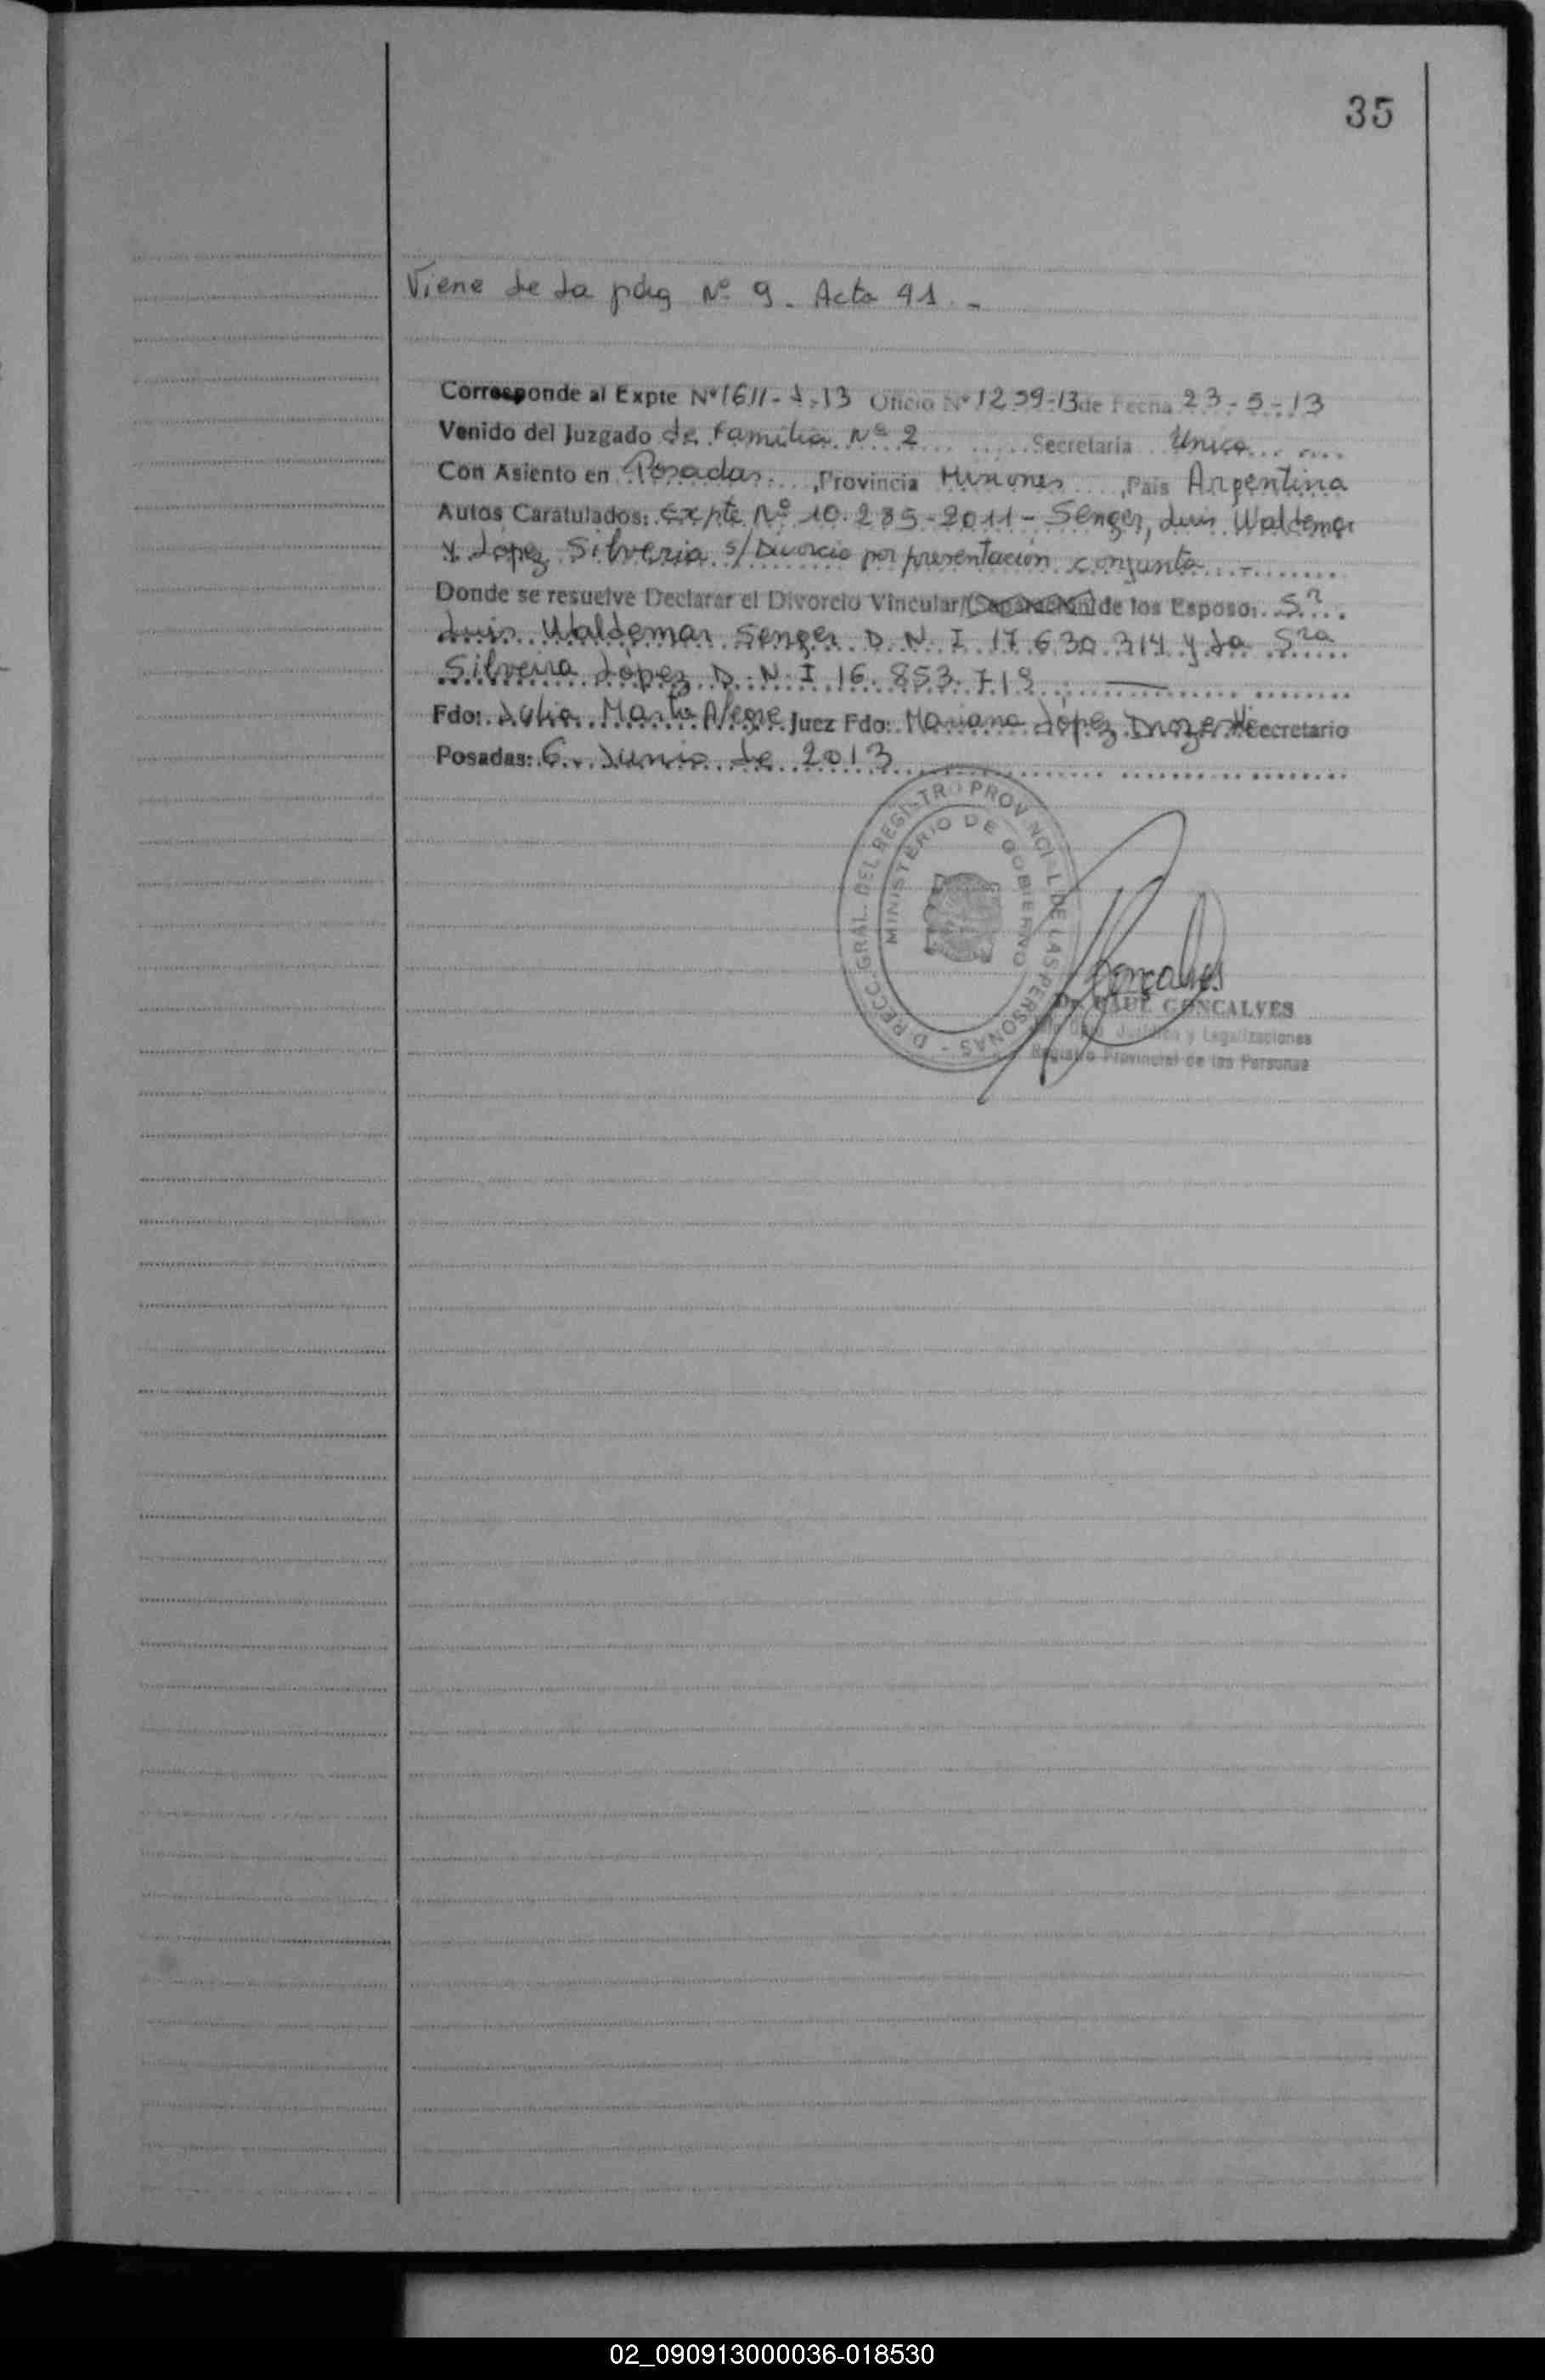 35
Viene de la pág Nº 9 - Acta 91 . -
Corresponde al Expte Nº 1611-J-13 Oficio Nº 1239-13 de Fecha 23-5-13
Venido del Juzgado de Familia Nº 2 Secretaria Unica
Con Asiento en Posadas , Provincia Misiones , País Argentina
Autos Caratulados: Expte Nº 10.285-2011 - Senger, Luis Waldemar
y Lopez Silveria s/ Divorcio por presentación conjunta
Donde se resuelve Declarar el Divorcio Vincular/(Separación) de los Esposo: Sr
Luis Waldemar Senger D.N.I 17.630.314 y La Sra
Silveira Lopez D.N.I 16.853.719 ; —
Fdo: Julia Marta Alegre Juez Fdo: Mariana López Secretario
Posadas: 6 Junio de 2013
DIRECC. GRAL. DEL REGISTRO PROVINCIAL DE LAS PERSONAS -
MINISTERIO DE GOBIERNO
Goncalves
Dr. RAUL GONCALVES
Jurídico y Legalizaciones
Registro Provincial de las Personas
02_090913000036-018530